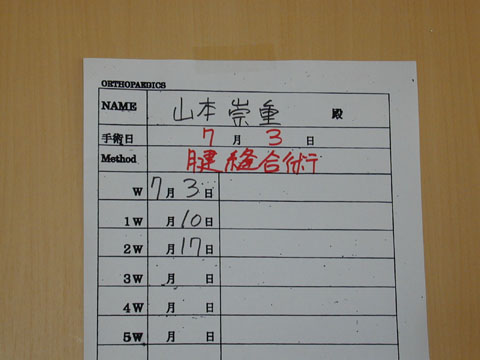 ORTHOPAEDICS
NAME 山本 崇重 殿
手術日 7 月 3 日
Method 腱縫合術
W 7月 3日
1W 月10日
2W 月17日
3W 月 日
4W 月 日
5W 月 日